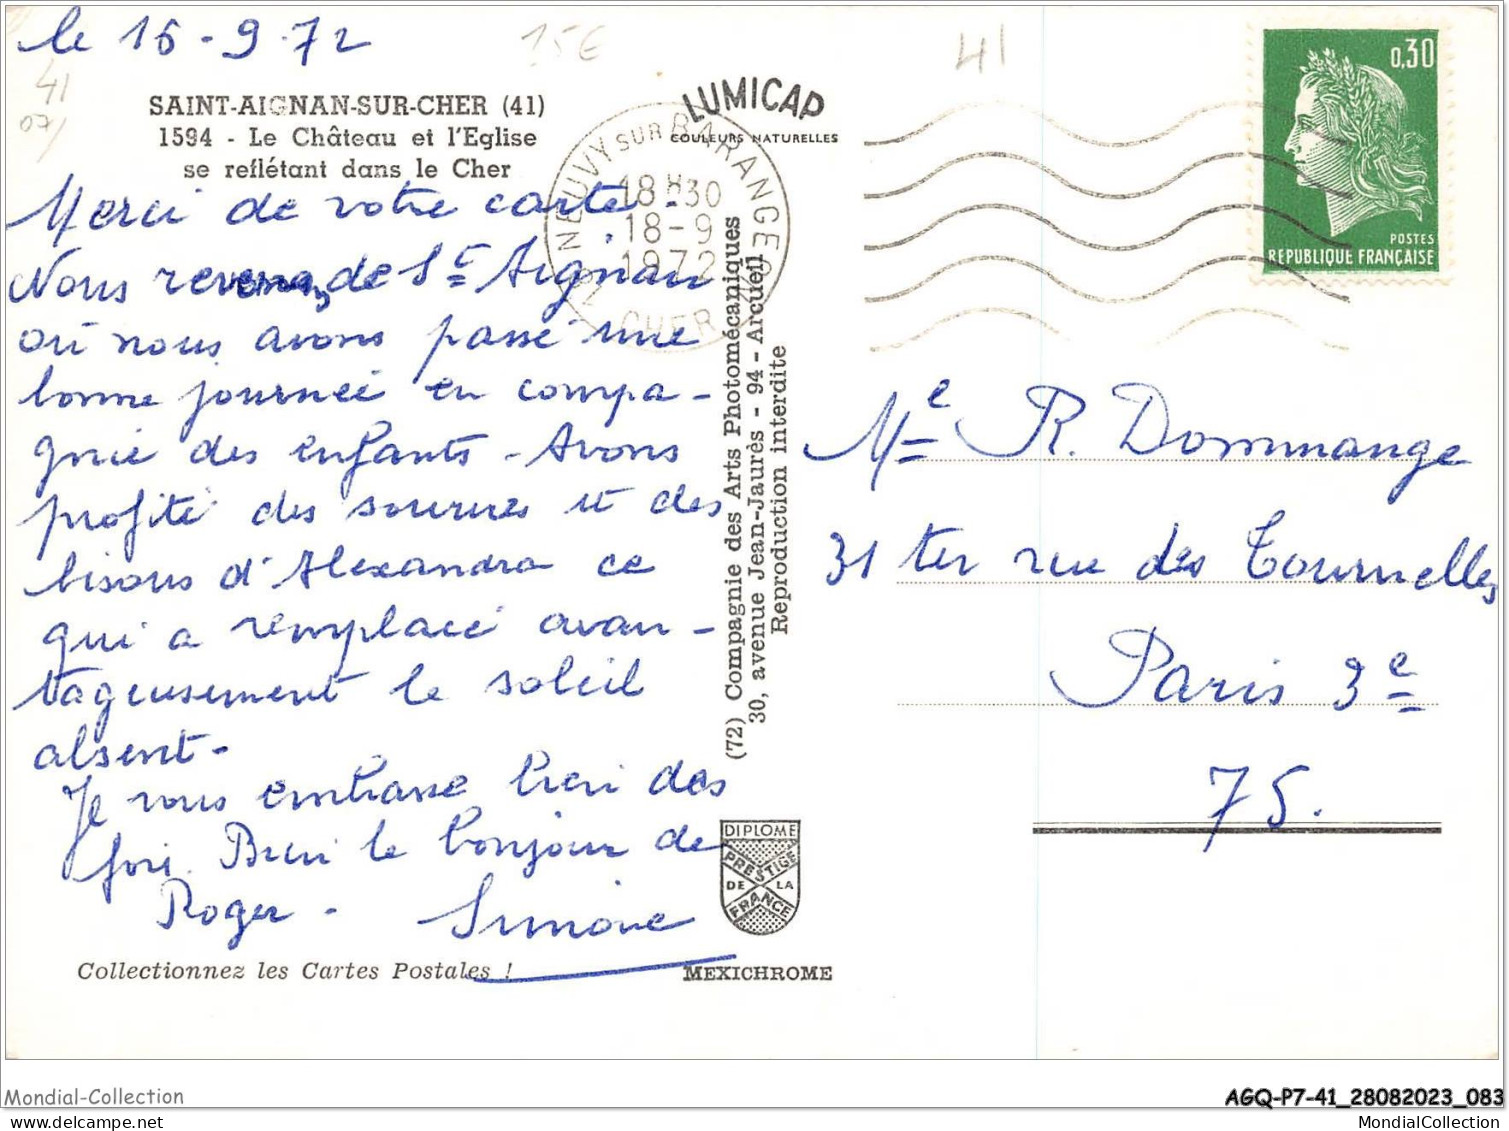 le 16-9-72
15€
41
41
07/
SAINT-AIGNAN-SUR-CHER (41)
1594 - Le Château et l'Eglise
se reflétant dans le Cher
LUMICAP
COULEURS NATURELLES
NEUVY SUR BARANGEON
18H30
18-9
1972
CHER
0,30
POSTES
REPUBLIQUE FRANÇAISE
Merci de votre carte.
Nous de St Aignan
où nous avons passé une
bonne journée en compa-
gnie des enfants - Avons
profité des sources et des
bisous d'Alexandra ce
qui a remplacé avan-
tageusement le soleil
absent -
Je vous embrasse bien des
fois. Bien le bonjour de
Roger - Simone
(72) Compagnie des Arts Photomécaniques
30, avenue Jean-Jaurès - 94 - Arcueil
Reproduction interdite
Me R. Dommange
31 ter rue des Tournelles
Paris 3e
75.
DIPLOME
PRESTIGE
DE LA
FRANCE
Collectionnez les Cartes Postales !
MEXICHROME
Mondial-Collection
AGQ-P7-41_28082023_083
MondialCollection.com
MondialCollection.com